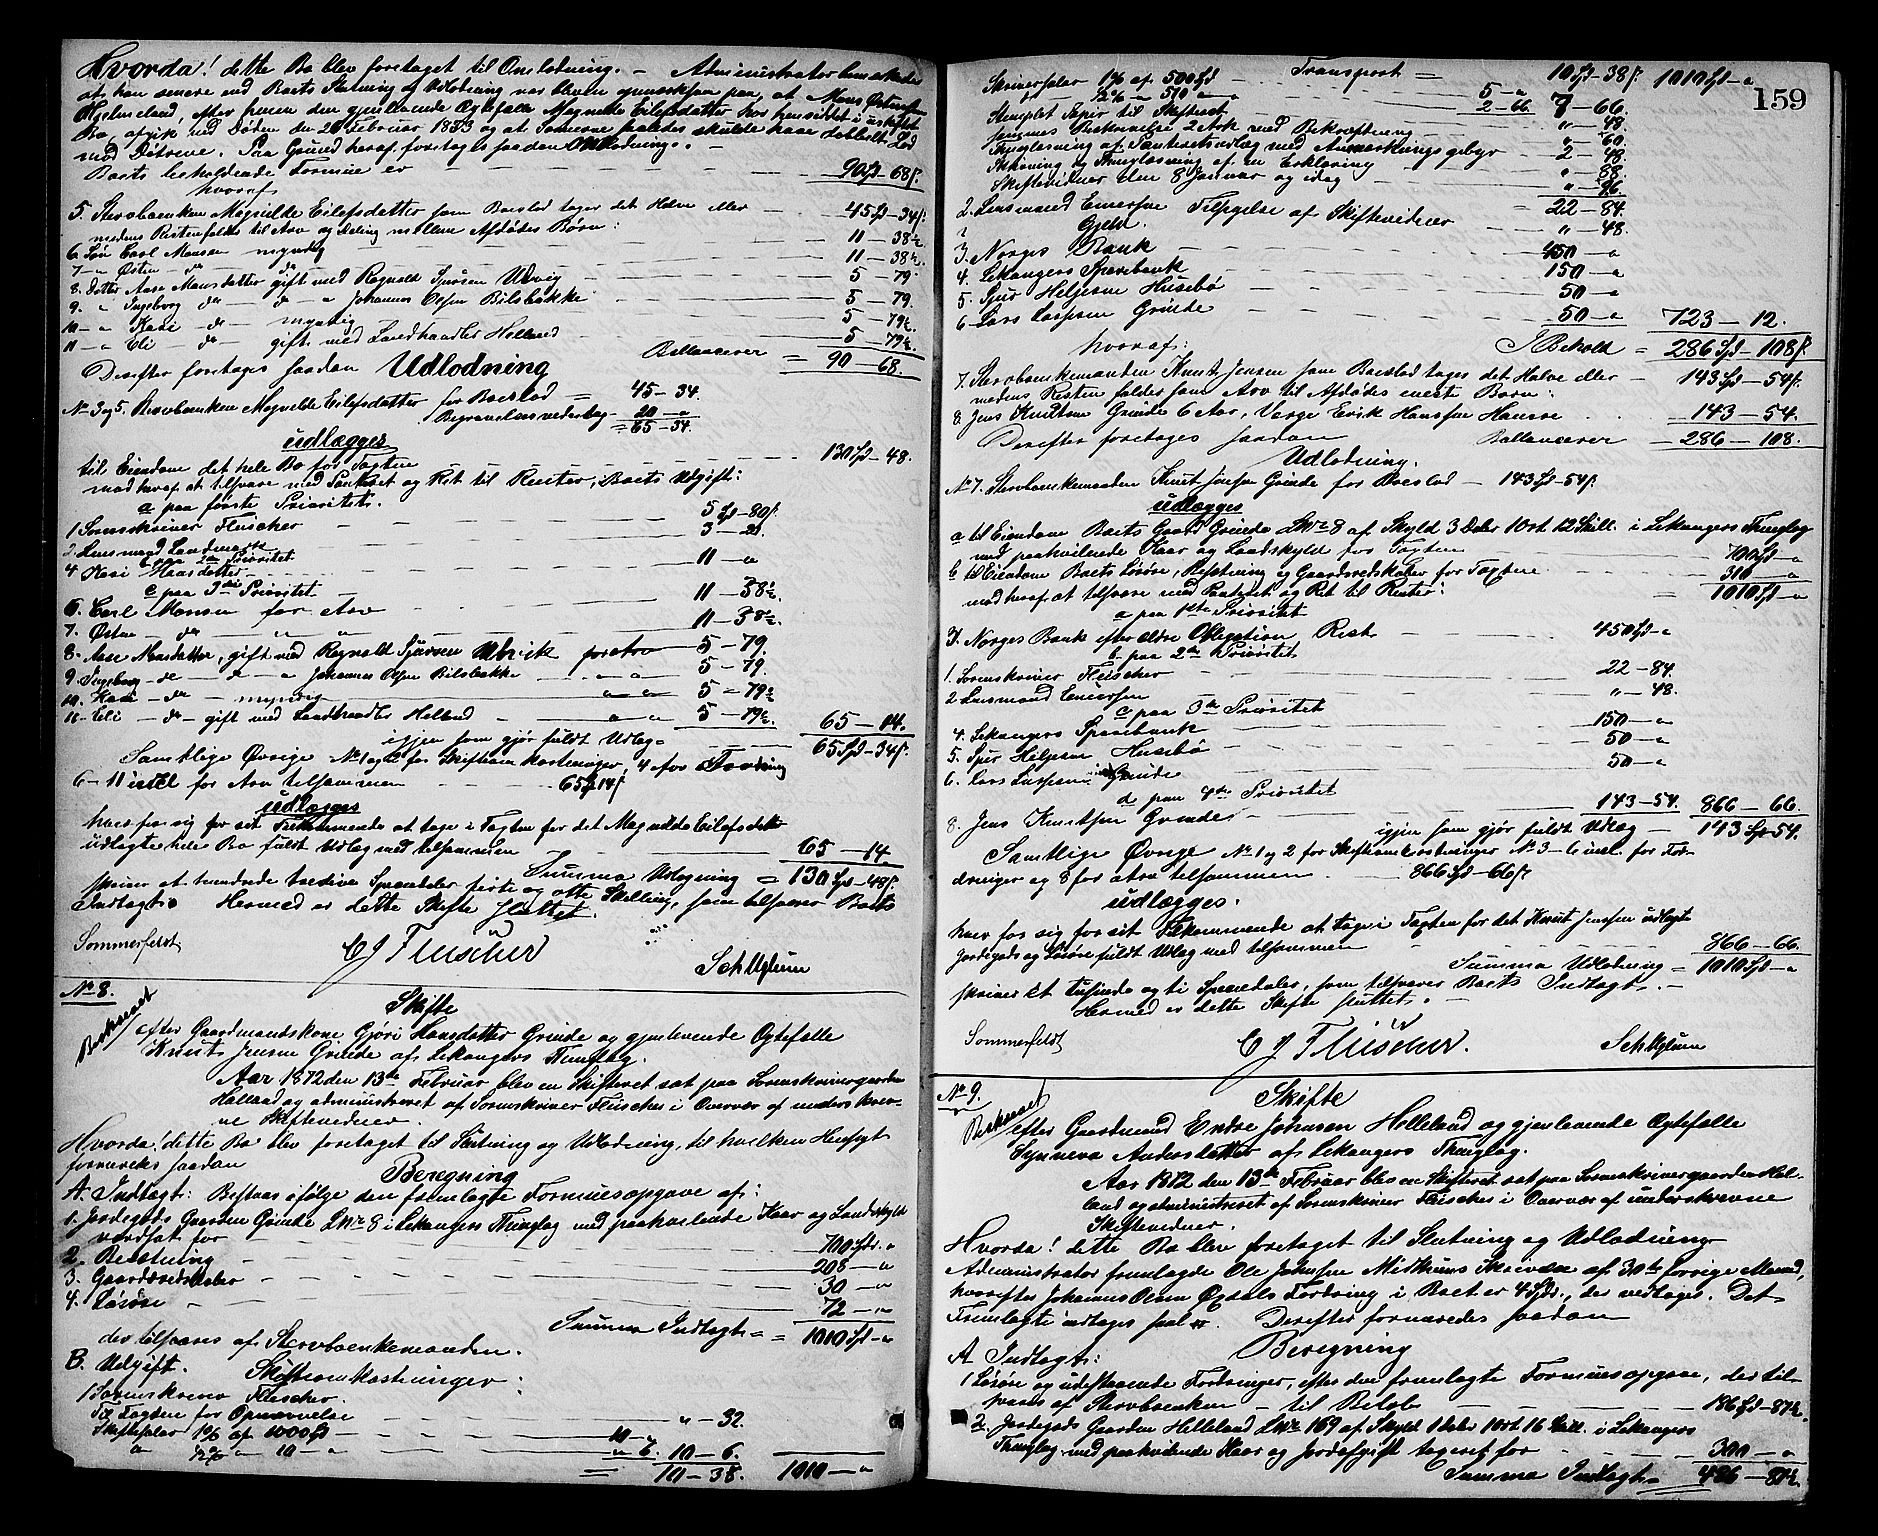 Hvorda! dette Bo blev foretaget til Omlodning. – Administrator bemærkede
at han senere end Boets Slutning og Udlodning var bleven opmærksom paa, at Mons Østensen
Hjelmeland, efter hvem den gjenlevende Ægtefælle Magnilde Eilefsdatter har hensiddet i uskiftet
Bo, afgik ved Døden den 20 Februar 1853 og at Sønnerne saaledes skulde have dobbelt Lod
mod Døtrene. Paa Grund heraf foretages saadan Omlodning. –
Boets beholdende Formue er – 90 Spd – 68 s.
hvoraf
5. Stervboenken Magnilde Eilefsdatter som Boeslod tager det Halve eller – 45 Spd – 34 s.
medens Resten falder til Arv og Deling mellem Afdødes Børn:
6. Søn Carl Monsen myndig – 11 – 38½
7 – " Østen – do – do – 11 – 38½
8. Datter Aase Monsdatter gift med Ragnald Sjursen Udvig – 5 – 79.
9. " Ingeborg do – do – " Johannes Olsen Bilsbakke – 5 – 79.
10 – " Kari – do – myndig – 5 – 79½
11 – " Eli – do – gift med Landhandler Helland – 5 – 79½
Ballancerer = 90 – 68.
Derefter foretages saadan Udlodning
No 3 og 5. Stervboenken Magnilde Eilefsdatter for Boeslod = 45 – 34.
Begravelsesvederlag – 20 – "
= 65 – 34.
udlægges
til Eiendom det hele Bo for Taxten – 130 Spd – 48.
mod heraf at tilsvare med Panteret og Ret til Renter, Boets Udgift:
a paa første Prioritet.
1 Sorenskriver Fleischer – 5 Spd – 80 s.
2. Lensmand Landmark – 3 – 20.
b paa 2den Prioritet
4 Kari Monsdatter – 11 – "
c paa 3die Prioritet
6. Carl Monsen for Arv – 11 – 38½
7. Østen – do – " – " – 11 – 38½
8. Aase Monsdatter, gift med Ragnald Sjursen Udvik for Arv – 5 – 79.
9. Ingeborg – do – do – " Johannes Olsen Bilsbakke – " – 5 – 79
10. Kari – do – myndig – " " – 5 – 79½
11. Eli – do – gift med Landhandler Helland – " " – 5 – 79½ 65 – 14.
igjen som gjør fuldt Udlæg – 65 Spd – 34 s.
Samtlige Øvrige No 1 og 2 for Skifteomkostninger, 4 for Fordring
6 – 11 incl for Arv tilsammen – 65 Spd 14 s.
udlægges
hver for sig for sit Tilkommende at tage i Taxten for det Magnilda Eilefsdatter
udlagte hele Bo fuldt Udlæg med tilsammen – 65 – 14.
Summa Udlodning = 130 Spd – 48 s.
skriver et hundrede tredive Speciedaler firti og otte Skilling, som tilsvarer Boets
Indtægt. Hermed er dette Skifte sluttet.
Sommerfeldt
C J Fleischer
Sch Uglum
No 8.
Beskrevet
Skifte
efter Gaardmandskone Gjøri Hansdatter Grinde og gjenlevende Ægtefælle
Knut Jensen Grinde af Lekangers Thinglag.
Aar 1872 den 13de Februar blev en Skifteret sat paa Sorenskrivergaarden
Helland og administreret af Sorenskriver Fleischer i Overvær af underskrev-
ne Skiftevidner.
Hvorda! dette Bo blev foretaget til Slutning og Udlodning, til hvilken Hensyn
forvaredes saadan
Beregning
A. Indtægt: Bestaar ifølge den fremlagte Formuesopgave af:
1. Jordegods Gaarden Grinde LNo 8 i Lekangers Thinglag med paahvilende Kaar og Landskyld
værdsat for – 700 Spdr. "
2. Besætning – 208 – "
3. Gaardsredskaber – 30 – "
4. Løsøre – 72 – "
Summa Indtægt = 1010 Spd – "
der tilsvares af Stervboenkemanden.
B. Udgift. Skifteomkostninger:
1 Sorenskriver Fleischer.
For Taxten for Opnævnelse – " – 32.
Skifteslær 1% af 1000 Spd – 10 – "
" ½% – 10 – " – " 6. 10 – 6.
= 10 – 38. 1010 – "
159
Transport = 10 Spd – 38 s. 1010 Spd – "
Skriverslær 1% af 500 Spd – 5 – "
½% – 510 – " – 2 – 66. 7 – 66.
Stemplet Papir til Skifteret – " – 48.
Sammes Beskrivelse 2 Ark med Bekræftning – " – 60.
Thinglæsning af Panteretsudlæg med Anmærkningsgebyr – 2 – 48.
Skrivning og Thinglæsning af en Erklæring – " – 88.
Skiftevidner den 8 Januar og idag – " – 96
= 22 – 84.
2. Lensmand Einersen Tilsigelse af Skiftevidner – " – 48.
Gjeld.
3. Norges Bank – 450 – "
4. Lekangers Sparebank – 150 – "
5. Sjur Heljesen Husebø – 50 – "
6. Lars Larsen Grinde – 50 – " 723 – 12.
I Behold = 286 Spd – 108 s.
hvoraf:
7. Stervboenkemanden Knut Jensen som Boeslod tager det Halve eller – 143 Spd – 54 s.
medens Resten falder som Arv til Afdødes eneste Barn:
8. Jens Knutsen Grinde 6 Aar, Verge Erik Hansen Hamre – 143 – 54.
Ballancerer – 286 – 108.
Derefter foretages saadan
Udlodning.
No 7. Stervboenkemanden Knut Jensen Grinde for Boeslod – 143 Spd – 54 s.
udlægges
a til Eiendom Boets Gaard Grinde LNo 8 af Skyld 3 Daler 1 Ort 12 Skill. i Lekangers Thinglag
med paahvilende Kaar og Landskyld for Taxten – 700 Spd – "
b til Eiendom Boets Løsøre, Besætning og Gaardsredskaber for Taxten – 310 – "
= 1010 Spd – "
mod heraf at tilsvare med Panteret og Ret til Renter:
a paa 1ste Prioritet
3. Norges Bank efter ældre Obligation, Rest – 450 Spd – "
b paa 2den Prioritet
1. Sorenskriver Fleischer – 22 – 84.
2 Lensmand Einersen – " – 48.
c paa 3die Prioritet
4. Lekangers Sparebank – 150 – "
5. Sjur Heljesen Husebø – 50 – "
6. Lars Larsen Grinde – 50 – "
d paa 4de Prioritet
8. Jens Knutsen Grinde – 143 – 54. 866 – 66.
igjen som gjør fuldt Udlæg – 143 Spd – 54.
Samtlige Øvrige No 1 og 2 for Skifteomkostninger No 3 – 6 incl. for For-
dringer og 8 for Arv tilsammen – 866 Spd – 66 s.
udlægges.
hver for sig for sit Tilkommende at tage i Taxten for det Knut Jensen udlagte
Jordegods og Løsøre fuldt Udlæg med tilsammen – 866 – 66.
Summa Udlodning = 1010 Spd – "
skriver Et tusinde og ti Speciedaler, som tilsvarer Boets Indtægt. –
Hermed er dette Skifte sluttet. –
Sommerfeldt
C J Fleischer.
Sch Uglum
No 9.
Beskrevet
Skifte
efter Gaardmand Endre Johnsen Helleland og gjenlevende Ægtefælle
Synneva Andersdatter af Lekangers Thinglag.
Aar 1872 den 13de Februar blev en Skifteret sat paa Sorenskrivergaarden Hel-
land og administreret af Sorenskriver Fleischer i Overvær af underskrevne
Skiftevidner.
Hvorda! dette Bo blev foretaget til Slutning og Udlodning
Administrator fremlagde Ole Johnsen Midtuns Skrivelse af 30te forrige Maaned,
hvorefter Johannes Olsen Fordring i Boet er 4 Spdr., der vedtages. Det
Fremlagte indtages saal. Derefter forvaredes saadan
Beregning
A Indtægt:
1 Løsøre og udestaaende Fordringer, efter den fremlagte Formuesopgave, der til-
svares af Stervboenken – til Beløb – 186 Spd – 87½.
2. Jordegods Gaarden Helleland LNo 169 af Skyld 1 Daler 1 Ort 16 Skill. i Lekangers
Thinglag med paahvilende Kaar og Jordafgift taxeret for – 300 – "
Summa Indtægt = 486 – 87½.